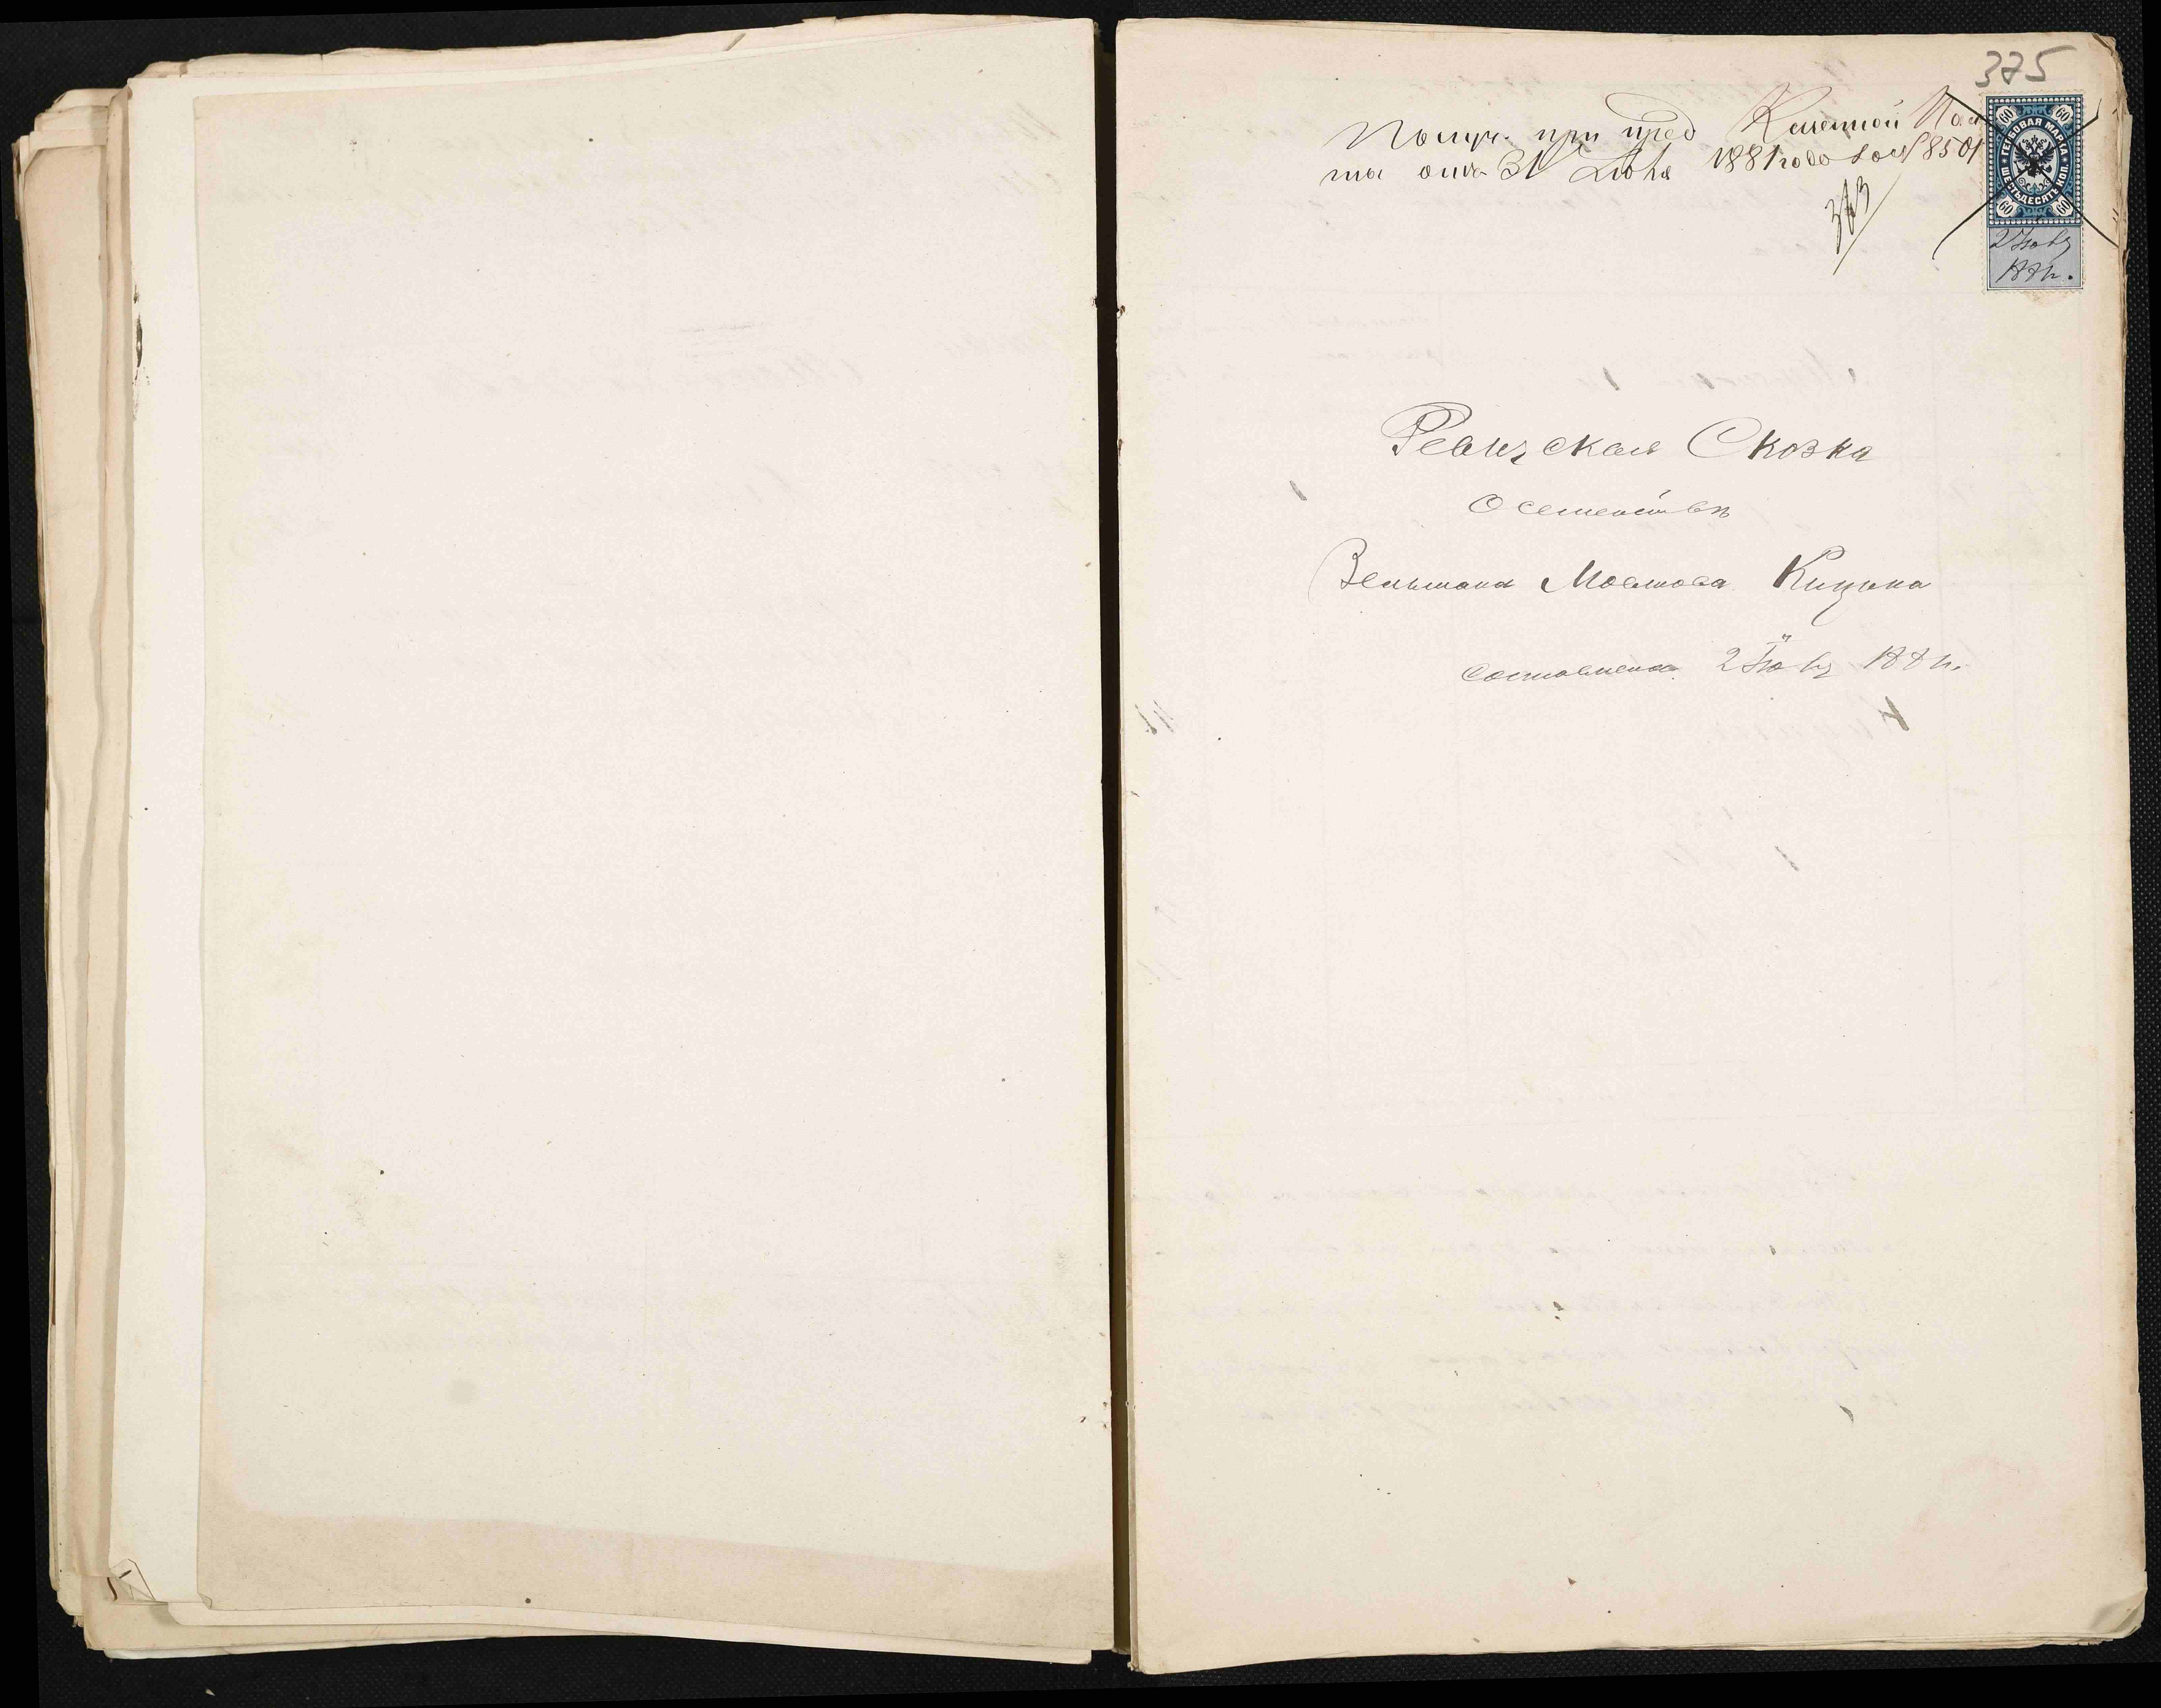 375
Получ. при пред Казенной Пала
ты отъ 31 Іюля 1881 года за № 8501
373
60 60
ГЕРБОВАЯ МАРКА
ШЕСТЬДЕСЯТЪ КОП.
60 60
2 Іюля
1881 г.
Ревизская Сказка
О семействѣ
Зельмана Мовшова Кицына
составлена 2 Іюля 1881 г.